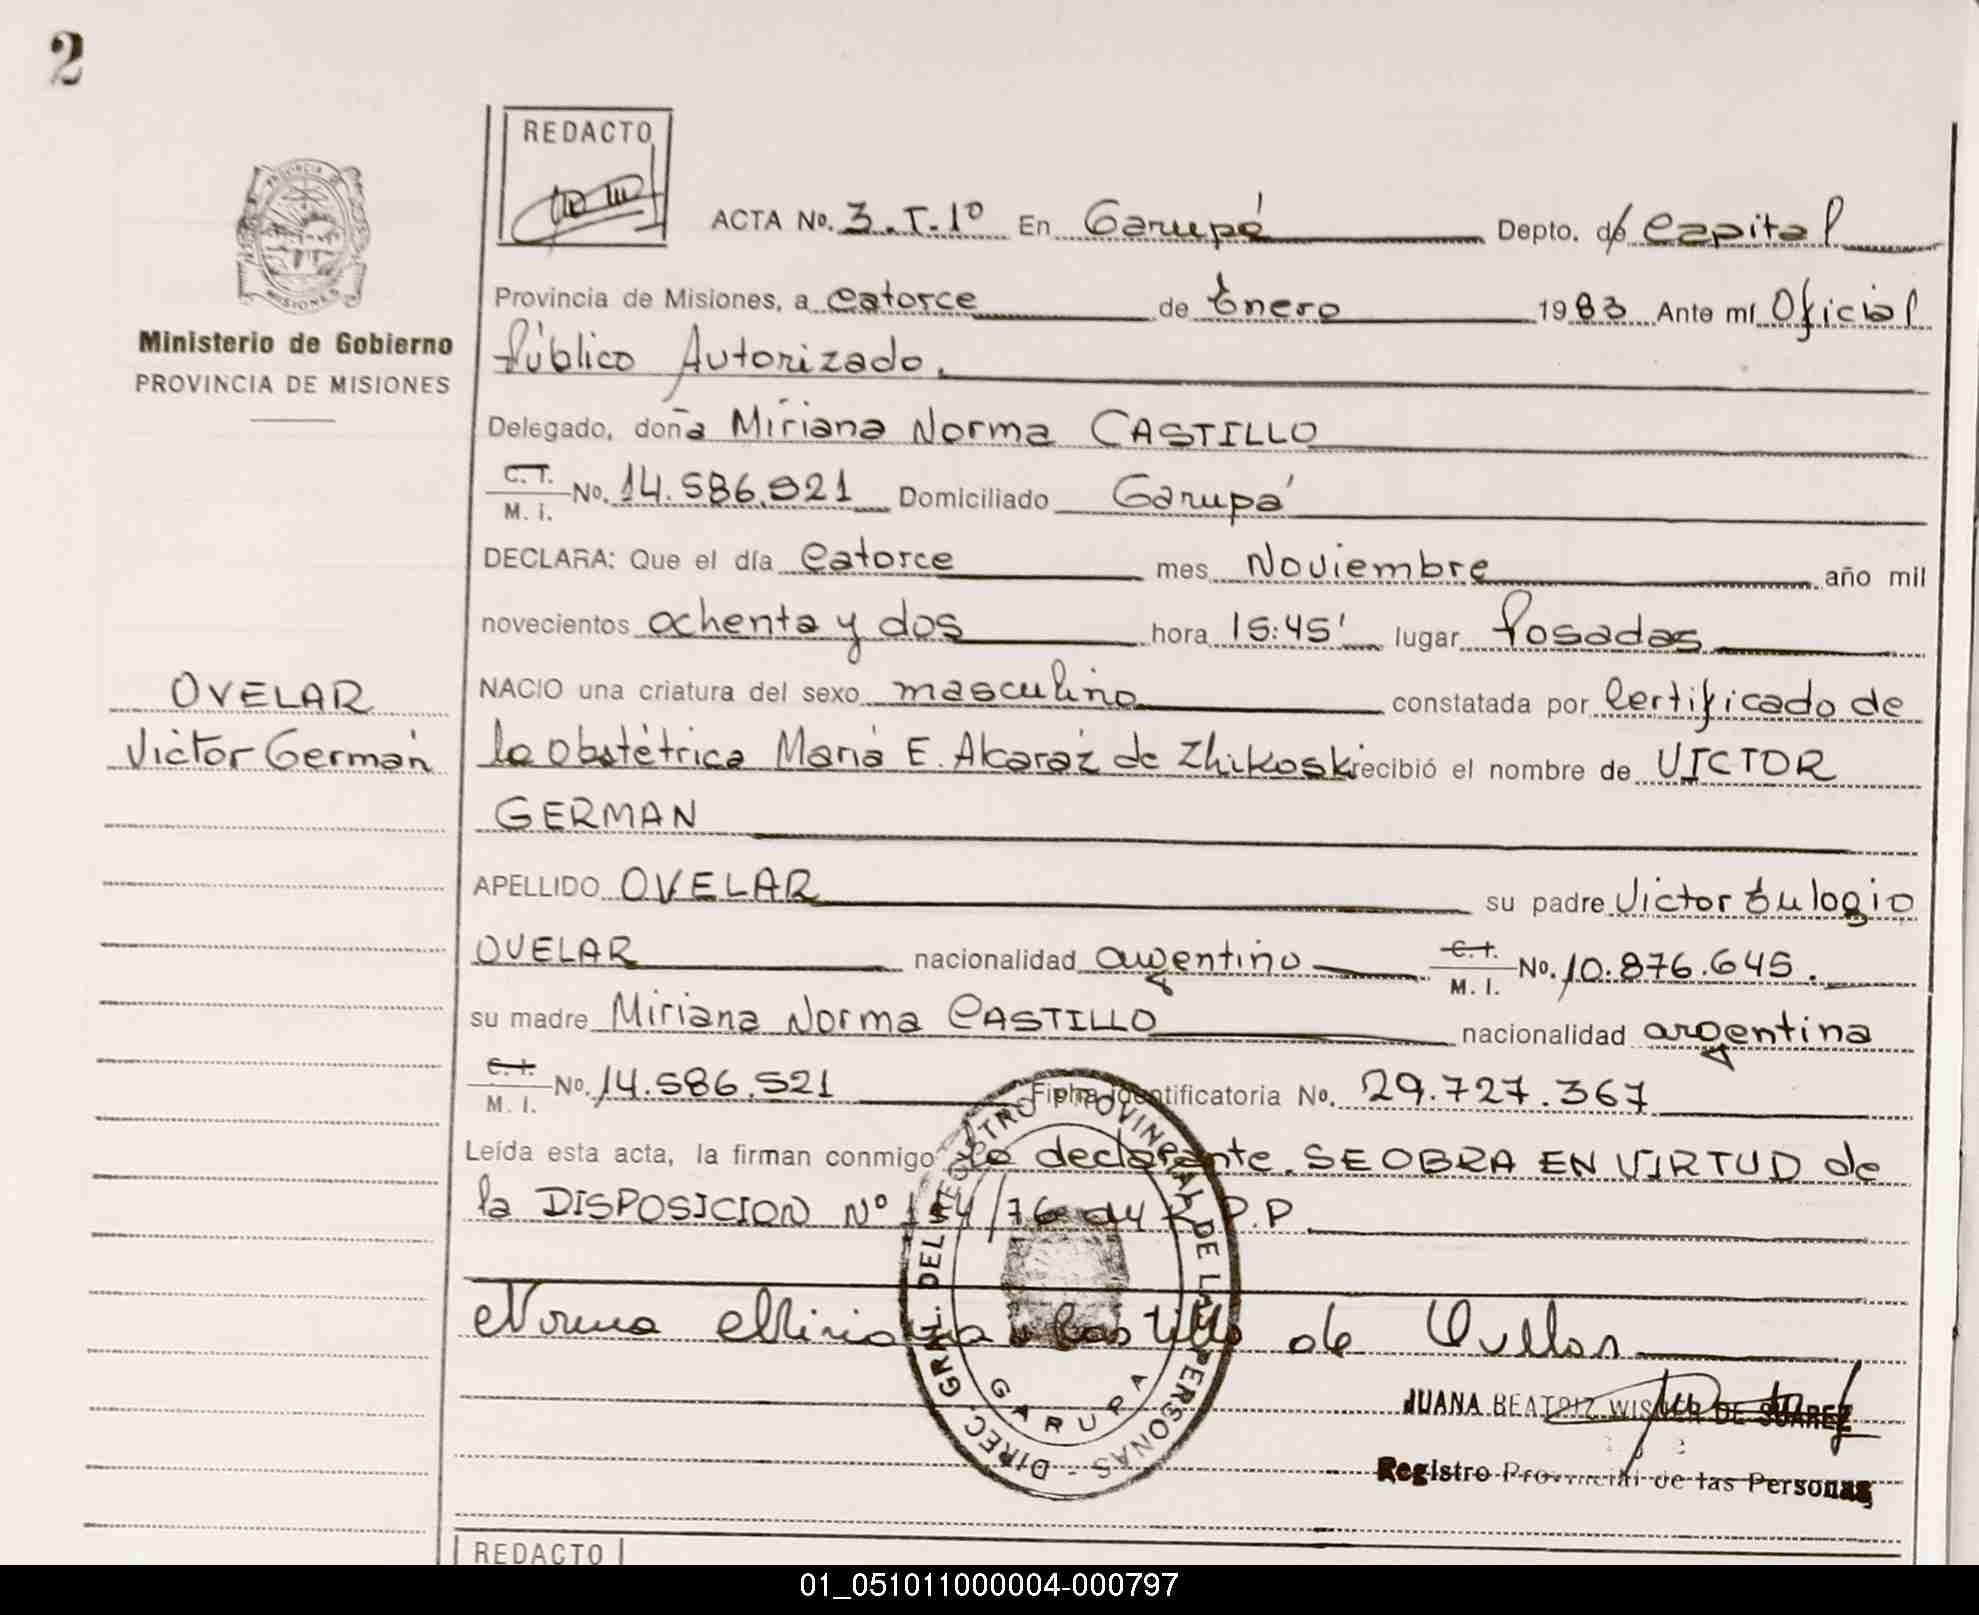 2
REDACTO
ACTA No. 3.T.1º En Garupá Depto. de Capital
Provincia de Misiones, a catorce de Enero 1983 Ante mí Oficial
Público Autorizado.
Ministerio de Gobierno
PROVINCIA DE MISIONES
Delegado, doña Miriana Norma CASTILLO
C.I.
M. I. No. 14.586.921 Domiciliado Garupá
DECLARA: Que el día catorce mes Noviembre año mil
novecientos ochenta y dos hora 15:45' lugar Posadas
OVELAR
Victor Germán
NACIO una criatura del sexo masculino constatada por Certificado de
la Obstétrica María E. Alcaráz de Zhikoski recibió el nombre de VICTOR
GERMAN
APELLIDO OVELAR su padre Victor Eulogio
OVELAR nacionalidad argentino C.I.
M. I. No. 10.876.645.
su madre Miriana Norma CASTILLO nacionalidad argentina
C.I.
M. I. No. 14.586.521 Ficha identificatoria No. 29.727.367
Leída esta acta, la firman conmigo la declarante. SE OBRA EN VIRTUD de
la DISPOSICION Nº /76 R.P.P.
Norma Miriana Castillo de Ovellar
DIREC. GRAL. DEL REGISTRO PROVINCIAL DE LAS PERSONAS -
GARUPA
JUANA BEATRIZ WISNER DE SUAREZ
Registro Provincial de las Personas
REDACTO
01_051011000004-000797